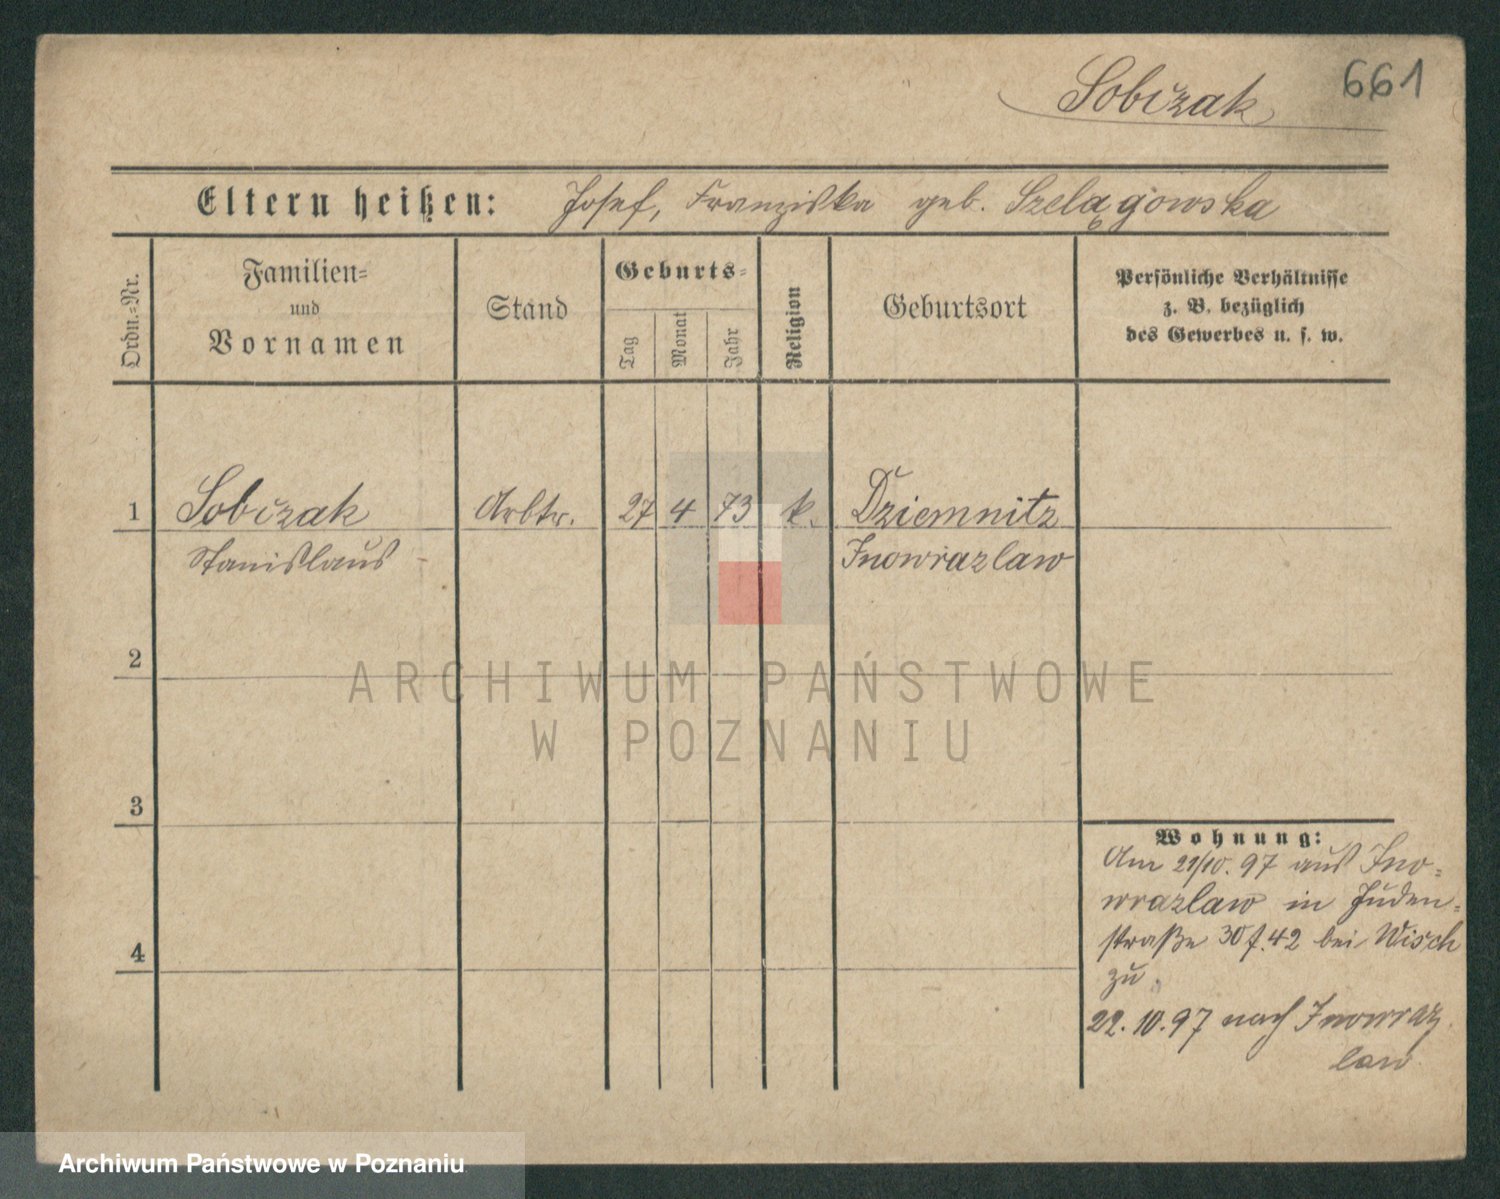 661
Sobczak
Eltern heißen: Josef, Franziska geb. Szelągowska
Ordn.=Nr.
Familien=
und
Vornamen
Stand
Geburts=
Tag
Monat
Jahr
Religion
Geburtsort
Persönliche Verhältnisse
z. B. bezüglich
des Gewerbes u. s. w.
1 Sobczak Arbtr. 27 4 73 k. Dziemnitz
Stanislaus Inowrazlaw
2
ARCHIWUM PAŃSTWOWE
W POZNANIU
3
Wohnung:
Am 21/10. 97 aus Ino=
wrazlaw in Juden=
straße 30 f. 42 bei Wisch
zu.
4
22. 10. 97 nach Inowraz
law
Archiwum Państwowe w Poznaniu